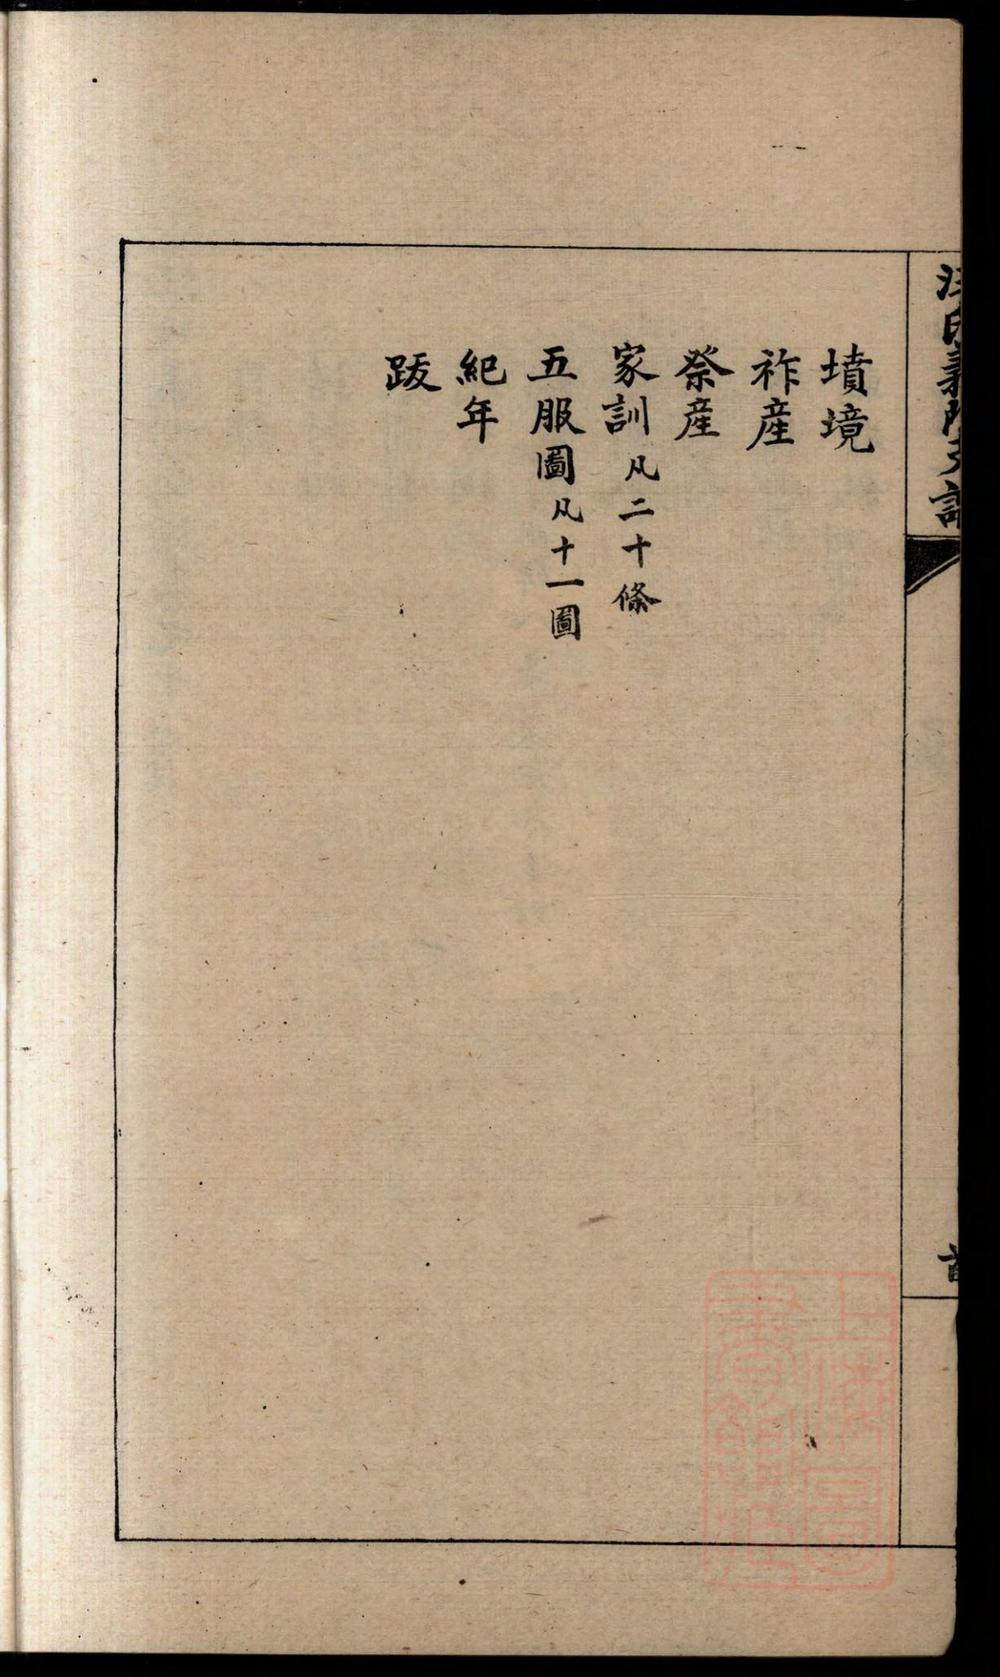 汪氏義門支譜
墳境
祚産
祭産
家訓凡二十條
五服圖凡十一圖
紀年
跋
首
上海圖書館藏